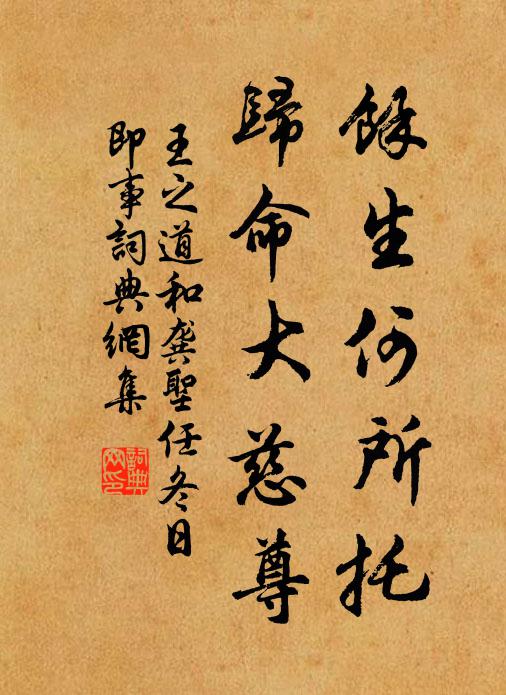 餘生何所托
歸命大慈尊
王之道和龔聖任冬日
即事詞典網集
詞典網印